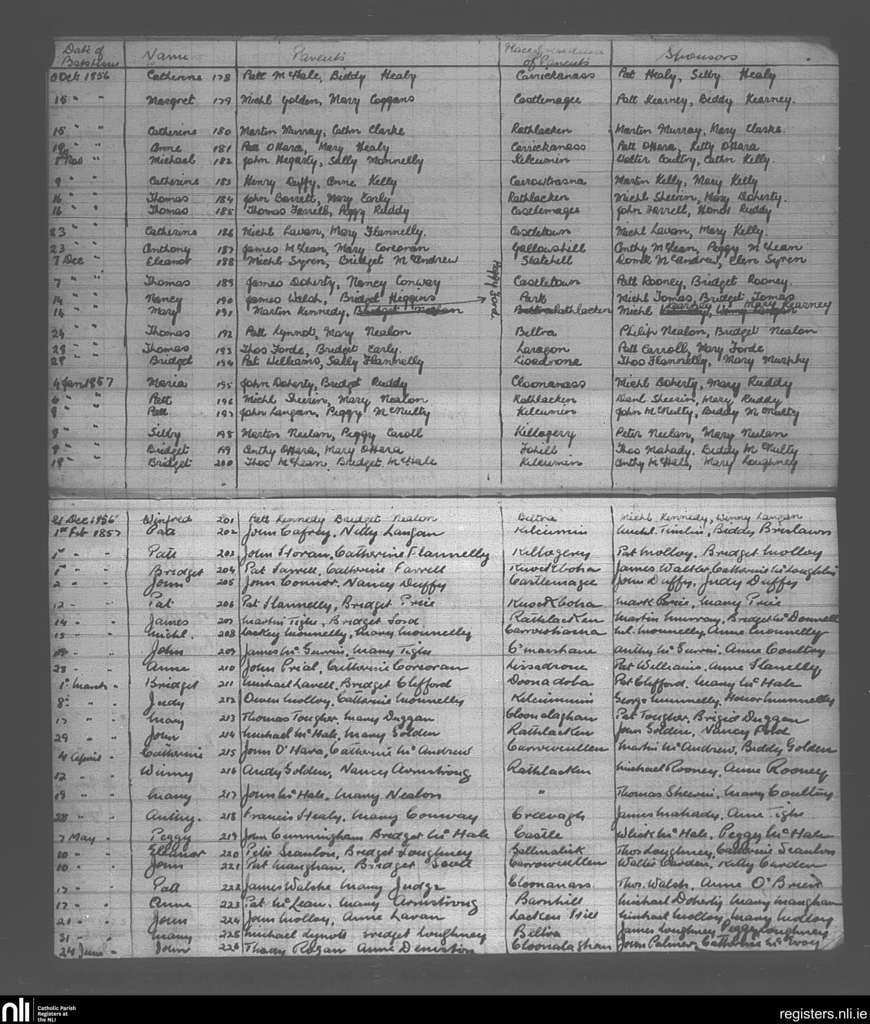 Date of Baptism Name Parents Place of residence of Parents Sponsors
Oct 1856 Catherine 178 Patt McHale, Biddy Healy Carrickanass Pat Healy, Silby Healy
15 " " Margret 179 Michl Golden, Mary Coggans Castlemagee Patt Kearney, Biddy Kearney.
15 " " Catherine 180 Martin Murray, Cathn Clarke Rathlacken Martin Murray, Mary Clarke.
19 " " Anne 181 Patt OHara, Mary Healy Carrickanass Patt OHara, Kitty OHara
Nov " Michael 182 John Hegarty, Sally Monnelly Kilcumin Coultry, Cathn Kelly.
9 " " Catherine 183 Henry Duffy, Anne Kelly Carrowtrasna Martin Kelly, Mary Kelly
16 " " Thomas 184 John Barrett, Mary Early Rathlacken Michl Sheerin, Mary Doherty.
16 " " Thomas 185 Thomas Farrell, Peggy Ruddy Castlemagee John Farrell, Honor Ruddy
23 " " Catherine 186 Michl Lavan, Mary Flannelly. Castletown Michl Lavan, Mary Kelly.
23 " " Anthony 187 James McLean, Mary Corcoran Gallowshill Anthy McLean, Peggy McLean
7 Dec " Eleanor 188 Michl Syron, Bridget McAndrew Statehill McAndrew, Elen Syron
7 " " Thomas 189 James Doherty, Nancy Conway Castletown Patt Rooney, Bridget Rooney.
14 " " Nancy 190 James Walsh, Bridget Heggins Park Michl Tomas, Bridget Tomas
Peggy Ford.
14 " " Mary 191 Martin Kennedy, Rathlacken Michl Kearney Mary Kearney
26 " " Thomas 192 Patt Lynnott, Mary Nealon Beltra Philip Nealon, Bridget Nealon
28 " " Thomas 193 Thos Forde, Bridget Early. Laragon Patt Carroll, Mary Forde
29 " " Bridget 194 Pat Williams, Sally Flannelly Lisadrone Thos Flannelly, Mary Murphy
4 Jan 1857 Maria 195 John Doherty, Bridget Ruddy Cloonanass Michl Doherty, Mary Ruddy
6 " " Patt 196 Michl Sheerin, Mary Nealon Rathlacken Danl Sheerin, Mary Ruddy
8 " " Patt 197 John Langan, Peggy McNulty Kilcumin John McNulty, Biddy McNulty
8 " " Silby 198 Martin Neelan, Peggy Caroll Killogery Peter Neelan, Mary Neelan
8 " " Bridget 199 Anthy OHara, Mary OHara Foxhill Thos Mahady, Biddy McNulty
18 " " Bridget 200 Thos McLean, Bridget McHale Kilcumin Anthy McHale, Mary Loughney
21 Dec 1856 Winfred 201 Patt Kennedy Bridget Nealon Beltra Michl Kennedy, Winny Langan
1st Feb 1857 Patt 202 John Cafrey, Nelly Langan Kilcummin Michl Timlin, Biddy Breslawn
1st " " Patt 203 John Horan, Catherine Flannelly Killogery Pat Molloy, Bridget Molloy
1st " " Bridget 204 Pat Farrell, Catherine Farrell Knockboha James Walker, Catherine McLoughlin
2 " " John 205 John Connor, Nancy Duffy Castlemagee John Duffy, Judy Duffy
12 " " Pat 206 Pat Flannelly, Bridget Price Knockboha Mark Price, Mary Price
14 " " James 207 Martin Tighe, Bridget Ford Rathlacken Martin Murray, Bridget McDonnell
15 " " Michl. 208 Lackey Monnelly, Mary Monnelly Carrowtrasna Ml. Monnelly, Anne Monnelly
" " John 209 James McGurrin, Mary Tighe C'marshane Anthy McGurrin, Anne Coultry
28 " " Anne 210 John Prial, Catherine Corcoran Lissadrone Pat Williams, Anne Flanelly
1st March " Bridget 211 Michael Lavell, Bridget Clifford Doonadoba Pat Clifford, Mary McHale
8 " " Judy 212 Owen Molloy, Catherine Monnelly Kilcummin George Munnelly, Honor Munnelly
17 " " Mary 213 Thomas Tougher, Mary Duggan Cloonalaghan Pat Tougher, Brigid Duggan
29 " " John 214 Michael McHale, Mary Golden Rathlacken John Golden, Nancy Ford
4 April " Catherine 215 John O'Hara, Catherine McAndrew Carrowcullen Martin McAndrew, Biddy Golden
12 " " Winny 216 Andy Golden, Nancy Armstrong Rathlacken Michael Rooney, Anne Rooney
19 " " Mary 217 John McHale, Mary Nealon " Thomas Sheerin, Mary Coultry
28 " " Anthy. 218 Francis Healy, Mary Conway Creevagh James Mahady, Anne Tighe
7 May " Peggy 219 John Cunningham Bridget McHale Castle McHale, Peggy McHale
10 " " Elleanor 220 Peter Scanlon, Bridget Loughney Ballinatisk Thos Loughney, Catherine Scanlon
10 " " John 221 Pat Maughan, Bridget Scott Carrowcullen Walter Carden, Kitty Carden
17 " " Patt 222 James Walshe Mary Judge Cloonanass Thos. Walsh, Anne O'Brien
17 " " Anne 223 Pat McLean, Mary Armstrong Barnhill Michael Doherty Mary Maughan
21 " " John 224 John Molloy, Anne Lavan Lacken Hill Michael Molloy, Mary Molloy
31 " " Mary 225 Michael Lynott Bridget Loughney Beltra James Loughney Peggy Loughney
24 June " John 226 Thady Rogan Anne Deniston Cloonalaghan John Palmer, Catherine McEvoy
nli Catholic Parish Registers at the NLI registers.nli.ie